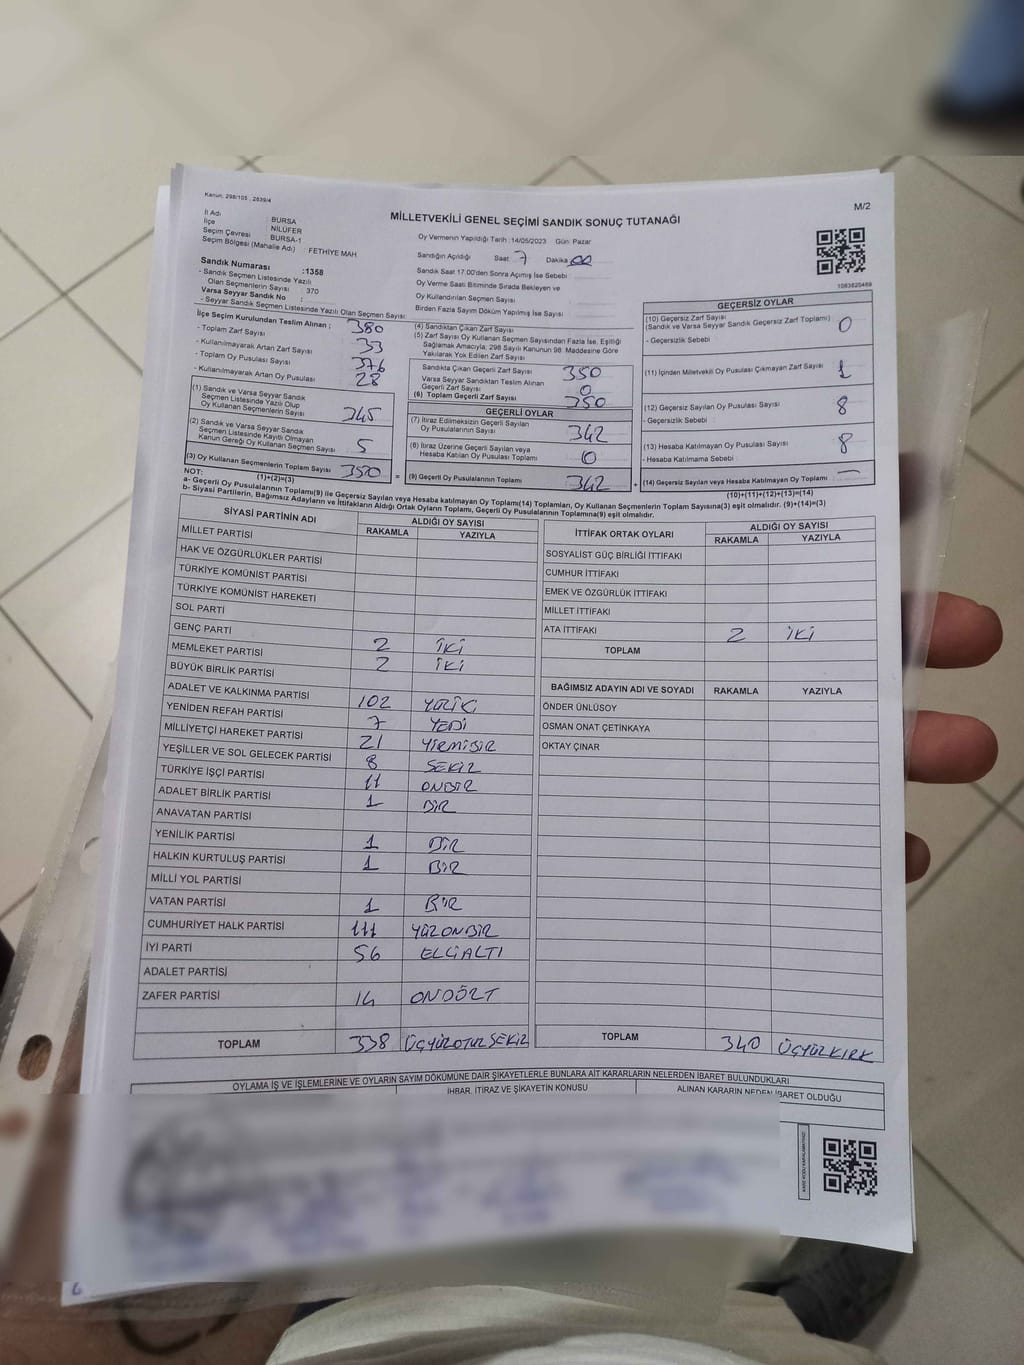 Kanun: 298/105 , 2839/4
M/2
MİLLETVEKİLİ GENEL SEÇİMİ SANDIK SONUÇ TUTANAĞI
İl Adı : BURSA
İlçe : NİLÜFER
Seçim Çevresi : BURSA-1
Seçim Bölgesi (Mahalle Adı) : FETHİYE MAH
Sandık Numarası :1358
- Sandık Seçmen Listesinde Yazılı
Olan Seçmenlerin Sayısı : 370
Varsa Seyyar Sandık No :
- Seyyar Sandık Seçmen Listesinde Yazılı Olan Seçmen Sayısı:
Oy Vermenin Yapıldığı Tarih :14/05/2023 Gün: Pazar
Sandığın Açıldığı Saat 7 Dakika 00
Sandık Saat 17.00'den Sonra Açılmış İse Sebebi
Oy Verme Saati Bitiminde Sırada Bekleyen ve
Oy Kullandırılan Seçmen Sayısı
Birden Fazla Sayım Döküm Yapılmış İse Sayısı
1083820469
İlçe Seçim Kurulundan Teslim Alınan ;
- Toplam Zarf Sayısı : 380
- Kullanılmayarak Artan Zarf Sayısı 33
- Toplam Oy Pusulası Sayısı 376
- Kullanılmayarak Artan Oy Pusulası 28
(1) Sandık ve Varsa Seyyar Sandık
Seçmen Listesinde Yazılı Olup
Oy Kullanan Seçmenlerin Sayısı 345
(2) Sandık ve Varsa Seyyar Sandık
Seçmen Listesinde Kayıtlı Olmayan
Kanun Gereği Oy Kullanan Seçmen Sayısı 5
(3) Oy Kullanan Seçmenlerin Toplam Sayısı 350
(1)+(2)=(3)
(4) Sandıktan Çıkan Zarf Sayısı
(5) Zarf Sayısı Oy Kullanan Seçmen Sayısından Fazla İse, Eşitliği
Sağlamak Amacıyla; 298 Sayılı Kanunun 98. Maddesine Göre
Yakılarak Yok Edilen Zarf Sayısı
Sandıkta Çıkan Geçerli Zarf Sayısı 350
Varsa Seyyar Sandıktan Teslim Alınan
Geçerli Zarf Sayısı 0
(6) Toplam Geçerli Zarf Sayısı 350
GEÇERLİ OYLAR
(7) İtiraz Edilmeksizin Geçerli Sayılan
Oy Pusulalarının Sayısı 342
(8) İtiraz Üzerine Geçerli Sayılan veya
Hesaba Katılan Oy Pusulası Toplamı 0
= (9) Geçerli Oy Pusulalarının Toplamı 342
GEÇERSİZ OYLAR
(10) Geçersiz Zarf Sayısı
(Sandık ve Varsa Seyyar Sandık Geçersiz Zarf Toplamı) 0
- Geçersizlik Sebebi
(11) İçinden Milletvekili Oy Pusulası Çıkmayan Zarf Sayısı 1
(12) Geçersiz Sayılan Oy Pusulası Sayısı 8
- Geçersizlik Sebebi
(13) Hesaba Katılmayan Oy Pusulası Sayısı 8
- Hesaba Katılmama Sebebi
+ (14) Geçersiz Sayılan veya Hesaba Katılmayan Oy Toplamı —
(10)+(11)+(12)+(13)=(14)
NOT:
a- Geçerli Oy Pusulalarının Toplamı(9) ile Geçersiz Sayılan veya Hesaba katılmayan Oy Toplam(14) Toplamları, Oy Kullanan Seçmenlerin Toplam Sayısına(3) eşit olmalıdır. (9)+(14)=(3)
b- Siyasi Partilerin, Bağımsız Adayların ve İttifakların Aldığı Ortak Oyların Toplamı, Geçerli Oy Pusulalarının Toplamına(9) eşit olmalıdır.
SİYASİ PARTİNİN ADI
ALDIĞI OY SAYISI
RAKAMLA YAZIYLA
MİLLET PARTİSİ
HAK VE ÖZGÜRLÜKLER PARTİSİ
TÜRKİYE KOMÜNİST PARTİSİ
TÜRKİYE KOMÜNİST HAREKETİ
SOL PARTİ
GENÇ PARTİ
MEMLEKET PARTİSİ 2 İKİ
BÜYÜK BİRLİK PARTİSİ 2 İKİ
ADALET VE KALKINMA PARTİSİ 102 YÜZİKİ
YENİDEN REFAH PARTİSİ 7 YEDİ
MİLLİYETÇİ HAREKET PARTİSİ 21 YİRMİBİR
YEŞİLLER VE SOL GELECEK PARTİSİ 8 SEKİZ
TÜRKİYE İŞÇİ PARTİSİ 11 ONBİR
ADALET BİRLİK PARTİSİ 1 BİR
ANAVATAN PARTİSİ
YENİLİK PARTİSİ 1 BİR
HALKIN KURTULUŞ PARTİSİ 1 BİR
MİLLİ YOL PARTİSİ
VATAN PARTİSİ 1 BİR
CUMHURİYET HALK PARTİSİ 111 YÜZONBİR
İYİ PARTİ 56 ELLİALTI
ADALET PARTİSİ
ZAFER PARTİSİ 14 ONDÖRT
TOPLAM 338 ÜÇYÜZOTUZSEKİZ
İTTİFAK ORTAK OYLARI
ALDIĞI OY SAYISI
RAKAMLA YAZIYLA
SOSYALİST GÜÇ BİRLİĞİ İTTİFAKI
CUMHUR İTTİFAKI
EMEK VE ÖZGÜRLÜK İTTİFAKI
MİLLET İTTİFAKI
ATA İTTİFAKI 2 İKİ
TOPLAM
BAĞIMSIZ ADAYIN ADI VE SOYADI RAKAMLA YAZIYLA
ÖNDER ÜNLÜSOY
OSMAN ONAT ÇETİNKAYA
OKTAY ÇINAR
TOPLAM 340 ÜÇYÜZKIRK
OYLAMA İŞ VE İŞLEMLERİNE VE OYLARIN SAYIM DÖKÜMÜNE DAİR ŞİKAYETLERLE BUNLARA AİT KARARLARIN NELERDEN İBARET BULUNDUKLARI
İHBAR, İTİRAZ VE ŞİKAYETİN KONUSU
ALINAN KARARIN NEDEN İBARET OLDUĞU